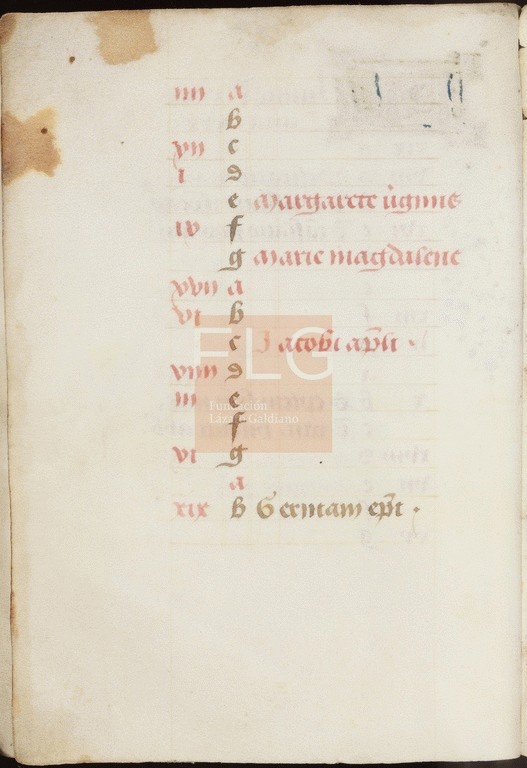 iiii a
b
xvii c
i d
e Margarete virginis
ix f
g Marie magdalene
xvii a
vi b
c Jacobi apli .
xiiii d
iii e
f
xi g
a
xix b Germani epi .
FLG
Fundación
Lázaro Galdiano